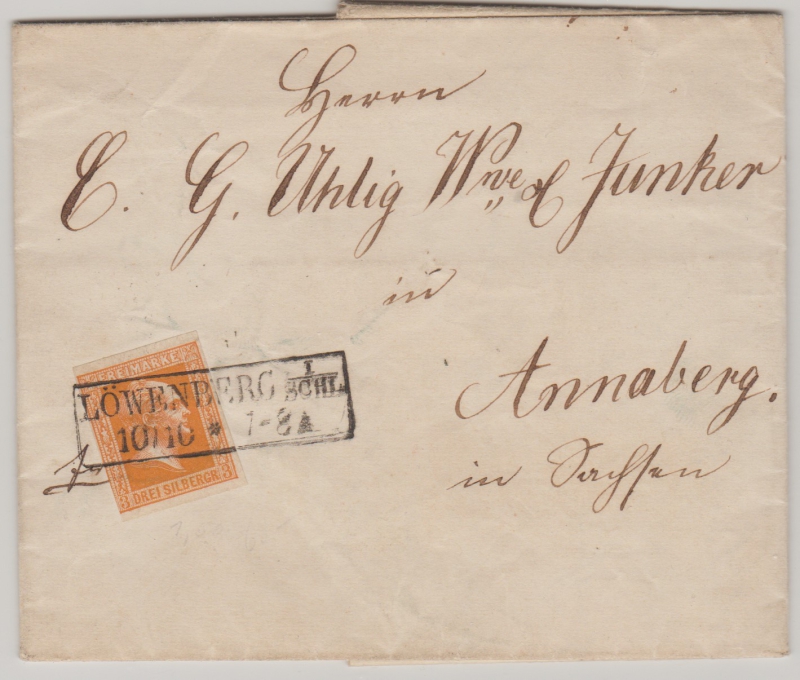 Herrn
C. G. Uhlig Wwe & Junker
in
Annaberg.
in Sachsen
FREIMARKE
LÖWENBERG I/SCHL.
10/10 * 7-8
3 DREI SILBERGR. 3